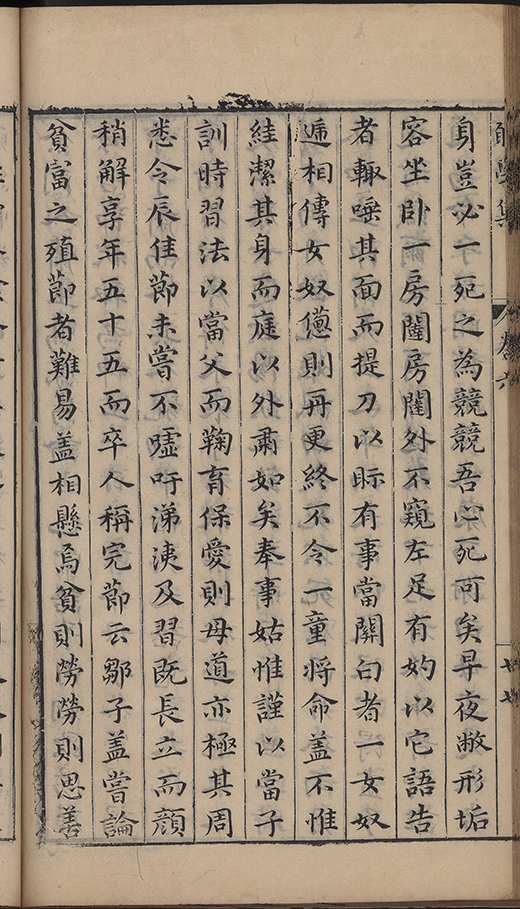 身豈必一死之為兢兢吾心死可矣早夜敝形垢
容坐卧一房闥房闥外不窺左足有妁以它語告
者輙唾其面而提刀以眎有事當關白者一女奴
逓相傳女奴憊則再更終不令一童將命盖不惟
絓潔其身而庭以外肅如矣奉事姑惟謹以當子
訓時習法以當父而鞠育保愛則母道亦極其周
悉令辰佳節未嘗不噓吁涕洟及習既長立而顔
稍解享年五十五而卒人稱完節云鄒子盖嘗論
貧富之殖節者難易盖相懸焉貧則勞勞則思善